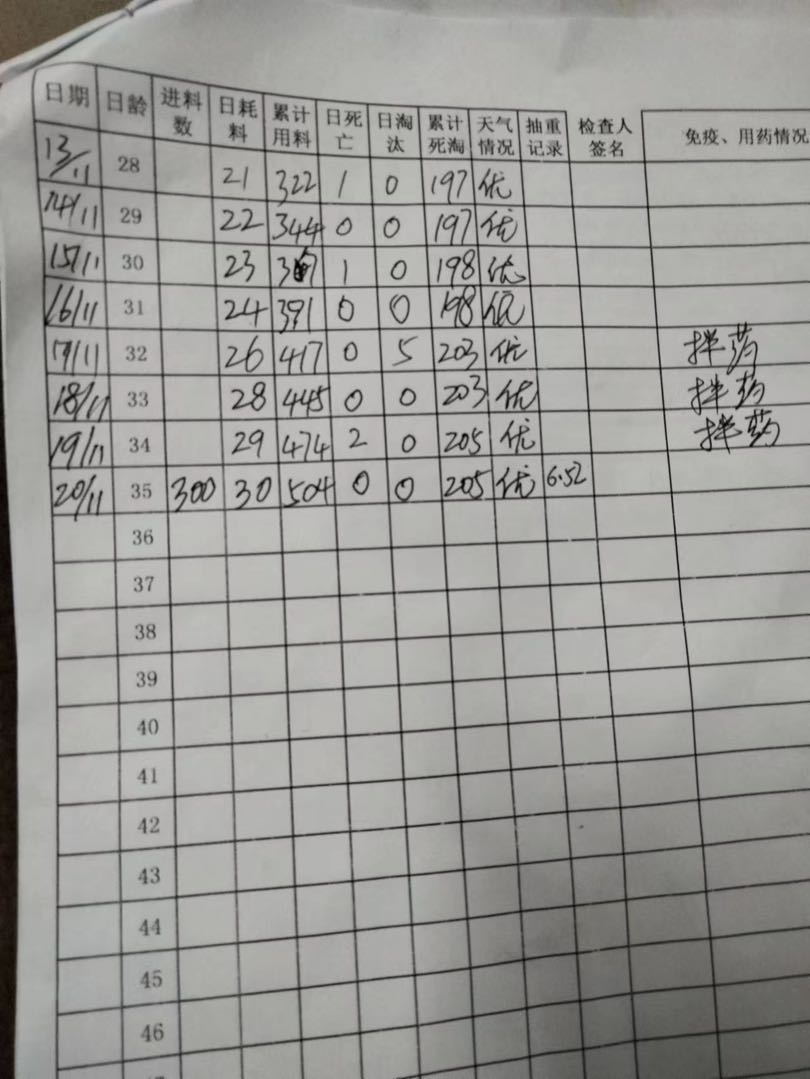 日期 日龄 进料数 日耗料 累计用料 日死亡 日淘汰 累计死淘 天气情况 抽重记录 检查人签名 免疫、用药情况
13/11 28 21 322 1 0 197 优
14/11 29 22 344 0 0 197 优
15/11 30 23 367 1 0 198 优
16/11 31 24 391 0 0 198 优
17/11 32 26 417 0 5 203 优 拌药
18/11 33 28 445 0 0 203 优 拌药
19/11 34 29 474 2 0 205 优 拌药
20/11 35 300 30 504 0 0 205 优 6.52
36
37
38
39
40
41
42
43
44
45
46